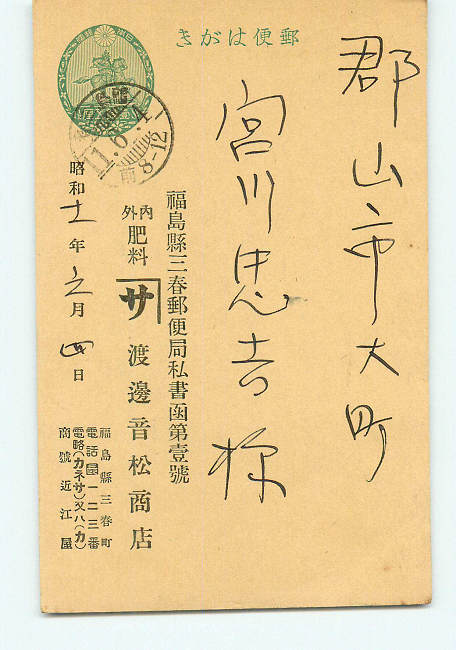 郵便はがき
郡山市大町
宮川忠吉様
福島縣三春郵便局私書函第壹號
內外肥料
サ
渡邊音松商店
福島縣三春町
電話園一二三番
電略(カネサ)又ハ(カ)
商號近江屋
昭和十一年六月四日
11.6.4
前8-12